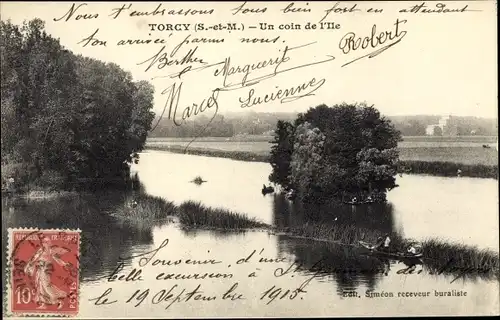 Nous t'embrassons tous bien fort en attendant
TORCY (S.-et-M.) - Un coin de l'Ile
ton arrivée parmis nous.
Robert
Berthe
Marguerite
Marcel
Lucienne
10
Souvenir d'une
belle excursion à
le 19 Septembre 1915
Edit. Siméon receveur buraliste